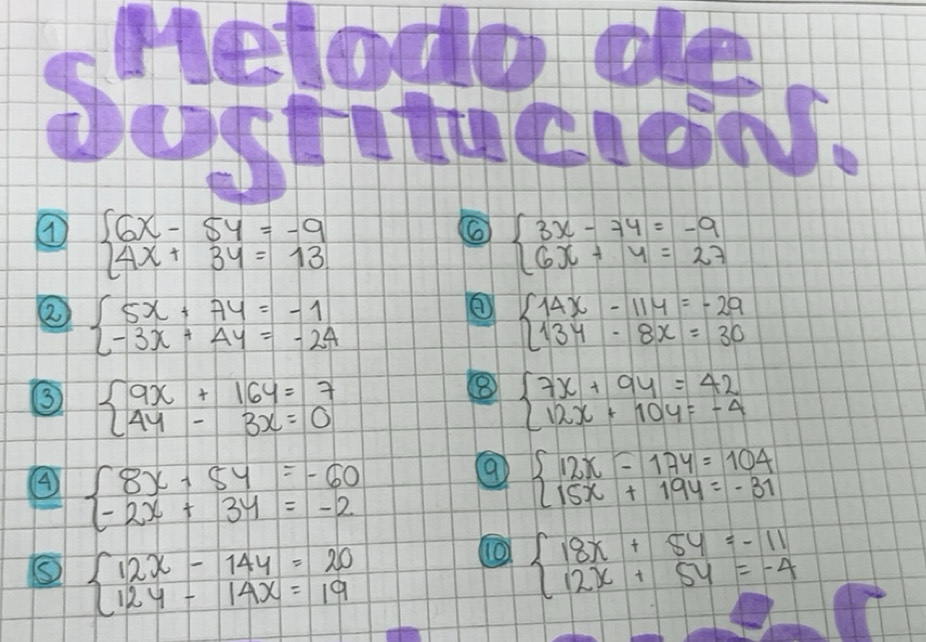 Metodo de
Sustitución.
1 6x - 5y = -9
4x + 3y = 13
2 5x + 7y = -1
-3x + 4y = -24
3 9x + 16y = 7
4y - 3x = 0
4 8x + 5y = -60
-2x + 3y = -2
5 12x - 14y = 20
12y - 14x = 19
6 3x - 7y = -9
6x + y = 27
7 14x - 11y = -29
13y - 8x = 30
8 7x + 9y = 42
12x + 10y = -4
9 12x - 17y = 104
15x + 19y = -31
10 18x + 5y = -11
12x + 5y = -4